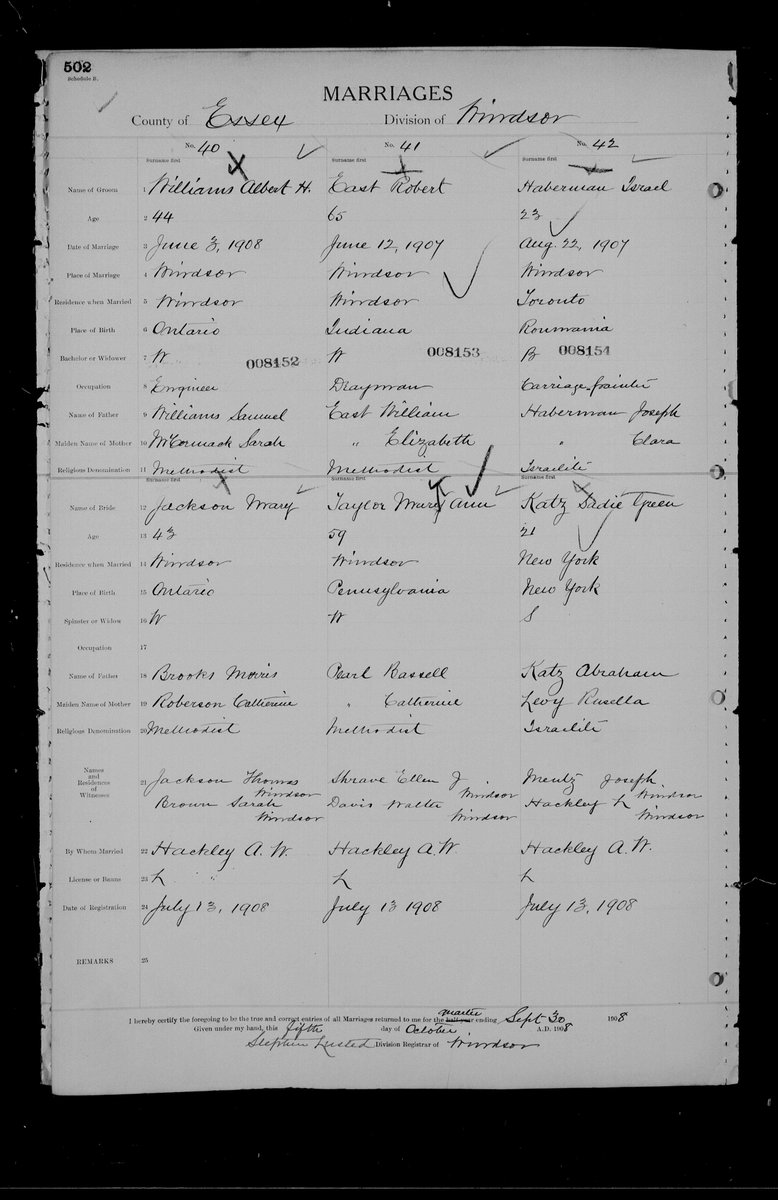 502
Schedule B.
MARRIAGES
County of Essex Division of Windsor
No. 40 No. 41 No. 42
Surname first Surname first Surname first
Name of Groom 1 Williams Albert H. East Robert Haberman Israel
Age 2 44 65 23
Date of Marriage 3 June 3, 1908 June 12, 1907 Aug. 22, 1907
Place of Marriage 4 Windsor Windsor Windsor
Residence when Married 5 Windsor Windsor Toronto
Place of Birth 6 Ontario Indiana Roumania
Bachelor or Widower 7 W 008152 W 008153 B 008154
Occupation 8 Engineer Drayman Carriage painter
Name of Father 9 Williams Samuel East William Haberman Joseph
Maiden Name of Mother 10 McCormack Sarah " Elizabeth " Clara
Religious Denomination 11 Methodist Methodist Israelite
Surname first Surname first Surname first
Name of Bride 12 Jackson Mary Taylor Mary Ann Katz Sadie Green
Age 13 43 59 21
Residence when Married 14 Windsor Windsor New York
Place of Birth 15 Ontario Pennsylvania New York
Spinster or Widow 16 W W S
Occupation 17
Name of Father 18 Brooks Morris Pearl Bassell Katz Abraham
Maiden Name of Mother 19 Roberson Catherine " Catherine Levy Rusella
Religious Denomination 20 Methodist Methodist Israelite
Names and Residences of Witnesses 21 Jackson Thomas Shrave Ellen J Mentz Joseph
Windsor Windsor Windsor
Brown Sarah Davis Walter Hackley L
Windsor Windsor Windsor
By Whom Married 22 Hackley A. W. Hackley A. W Hackley A. W.
License or Banns 23 L L L
Date of Registration 24 July 13, 1908 July 13 1908 July 13, 1908
REMARKS 25
I hereby certify the foregoing to be the true and correct entries of all Marriages returned to me for the half year ending Sept 30 1908
Given under my hand, this fifth day of October A.D. 1908
Stephen Lusted Division Registrar of Windsor